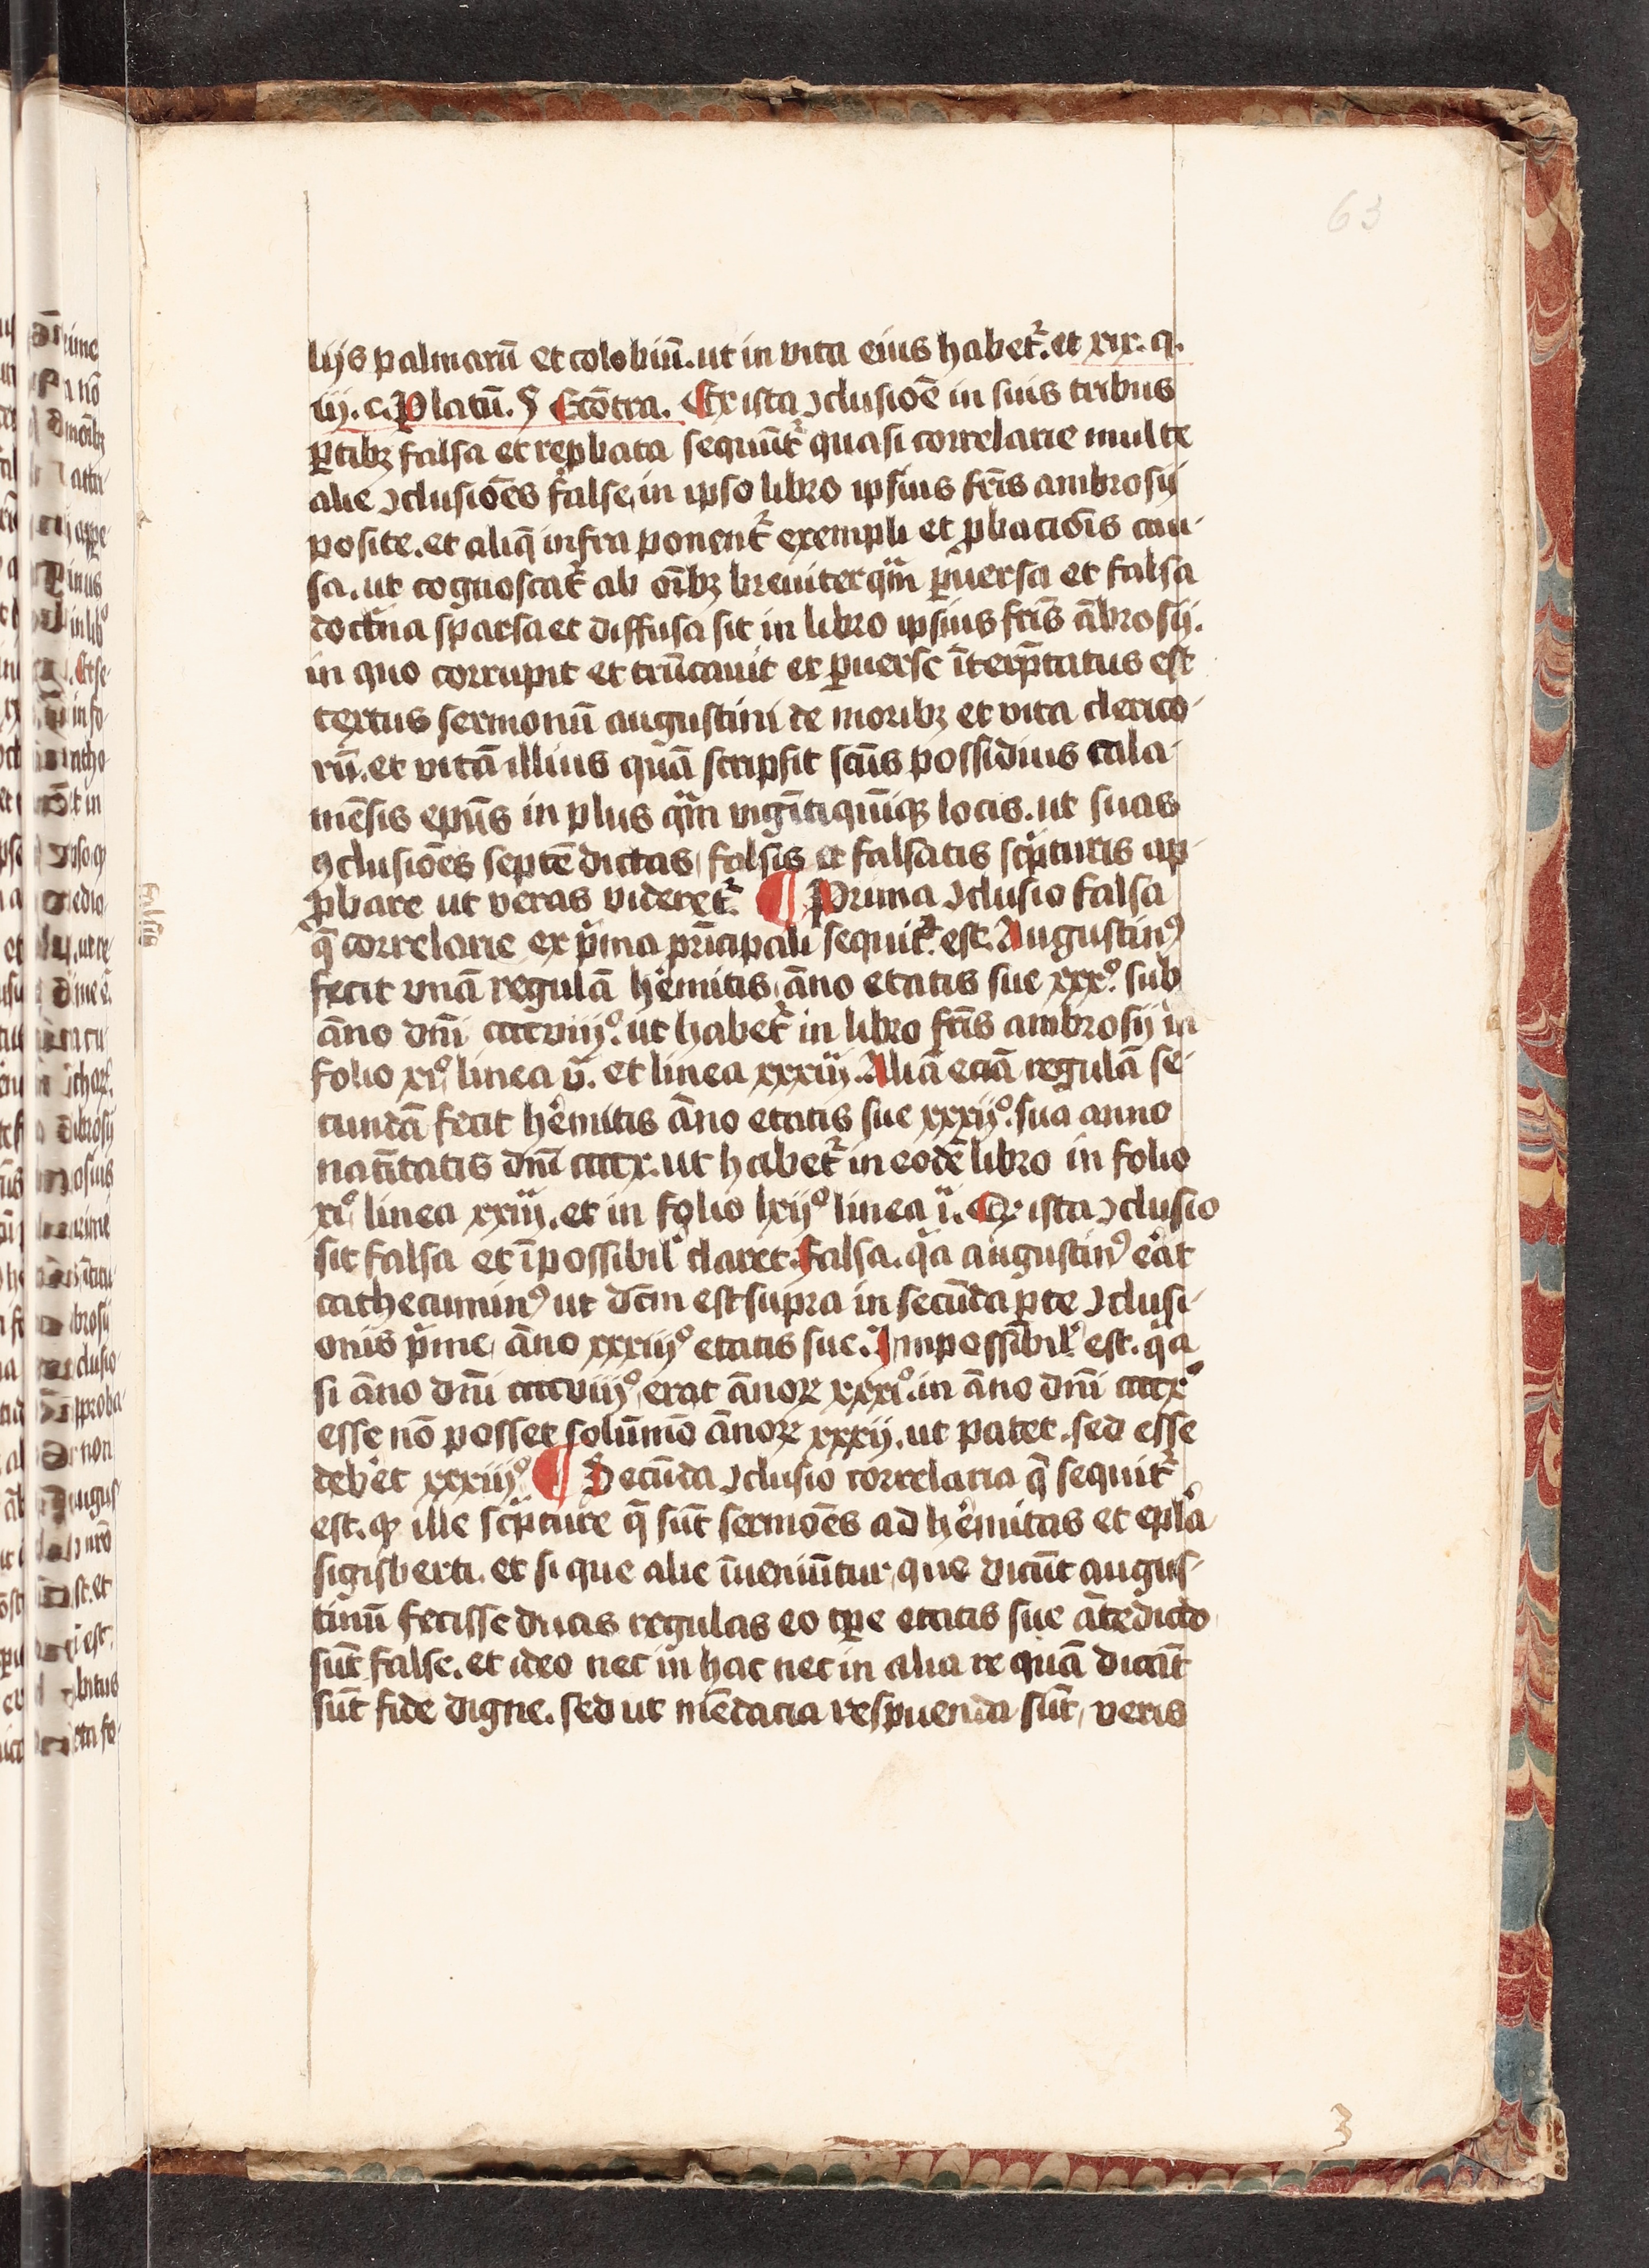 63
lijs palmarū et colobiū. ut in vita eius habet᷑. et xix. q.
iij. c. Platū. § Ecōtra. Ex ista ↄclusiōe in suis tribus
ꝑtibꝫ falsa et reꝓbata sequūt᷑ quasi correlarie multe
alie ↄclusiōes false in ipso libro ipsius fr̄is ambrosij
posite. et aliq̄ infra ponent᷑ exempli et ꝓbaciōis cau-
sa. ut cognoscat᷑ ab oībꝫ breuiter qͣm ꝑuersa et falsa
doctͥna sparsa et diffusa sit in libro ipsius fr̄is ābrosij.
in quo corrupit et trūcauit et ꝑuerse īterp̄tatus est
textus sermonū augustini de moribꝫ et vita clerico-
rū. et vitā illius quā scripsit sc̄us possidius cala-
mēsis ep̄us in plus qͣm vigītiquīqꝫ locis. ut suas
ꝯclusiōes septē dictas falsis et falsatis sc̄pturis ap-
ꝓbare ut veras videret᷑. ¶ Prima ↄclusio falsa
q̄ correlarie ex pͥma prīcipali sequit᷑ est. Augustinꝰ
fecit vnā regulā hēmitis āno etatis sue xxxͦ. sub
āno dn̄i ccccviijͦ. ut habet᷑ in libro fr̄is ambrosij in
folio xiͦ linea v̄. et linea xxxiij. Aliā eciā regulā se-
cundā fecit hēmitis āno etatis sue xxxijͦ. sua anno
natītatis dn̄i ccccx. ut habet᷑ in eodē libro in folio
xiͦ linea xxiij. et in folio lxijͦ linea ij. Qͥ ista ↄclusio
sit falsa et īpossibil᷑ claret. Falsa. qͥa augustinꝰ erat
cathecuminꝰ ut dc̄m est supra in secūda ꝑte ↄclusi-
onis pͥme āno xxxiijͦ etatis sue. Impossibil᷑ est. qͥa
si āno dn̄i ccccviijͦ erat ānoꝝ xxxiͦ. in āno dn̄i ccccxͦ
esse nō posset solūmō ānoꝝ xxxij. ut patet. sed esse
deb᷑et xxxiijͦ ¶ Secūda ↄclusio correlaria q̄ sequit᷑
est. qꝫ ille sc̄pture q̄ sūt sermōes ad hēmitas et ep̄la
sigisberti. et si que alie īueniūtur que dicūt augus-
tinū fecisse duas regulas eo tꝑe etatis sue ātedicto
sūt false. et ideo nec in hac nec in alia re quā dicāt
sūt fide digne. sed ut mēdacia respuenda sūt, veris
3